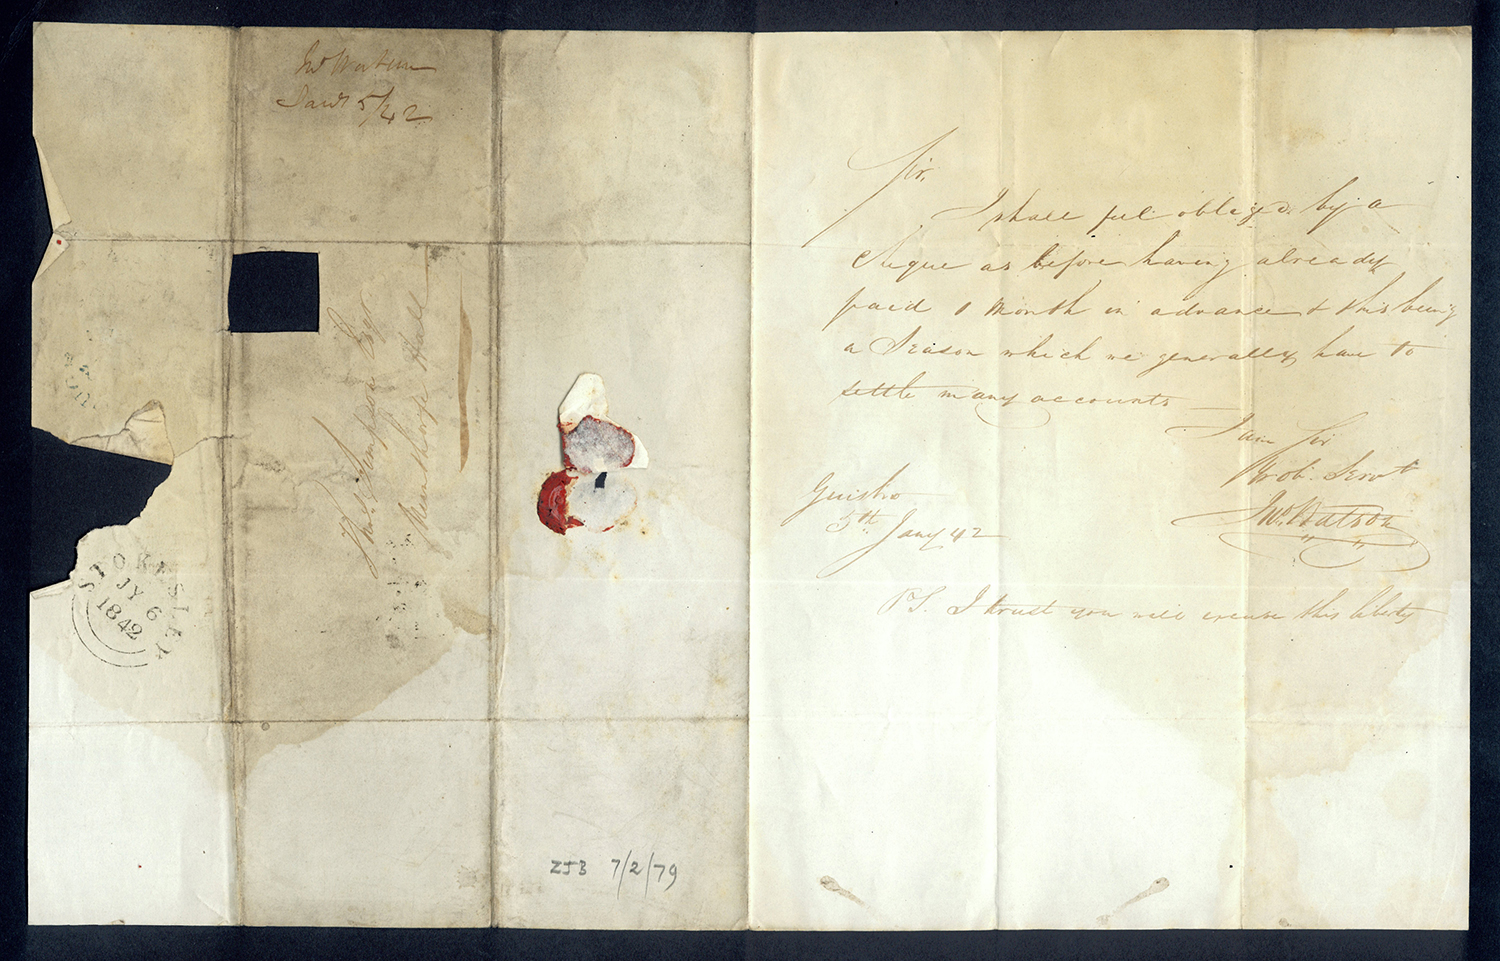 Jno Watson
Jany 5/42
Thos. Simpson Esqr
Nunthorpe Hall
STOKESLEY
JY 6
1842
ZJB 7/2/79
Sir,
I shall feel obliged by a
Cheque as before having already
paid 1 Month in advance & this being
a Season which we generally have to
settle many accounts
I am Sir
Yr ob. Servt
Jno. Watson
Guisbro
5th Jany 42
PS. I trust you will excuse this liberty